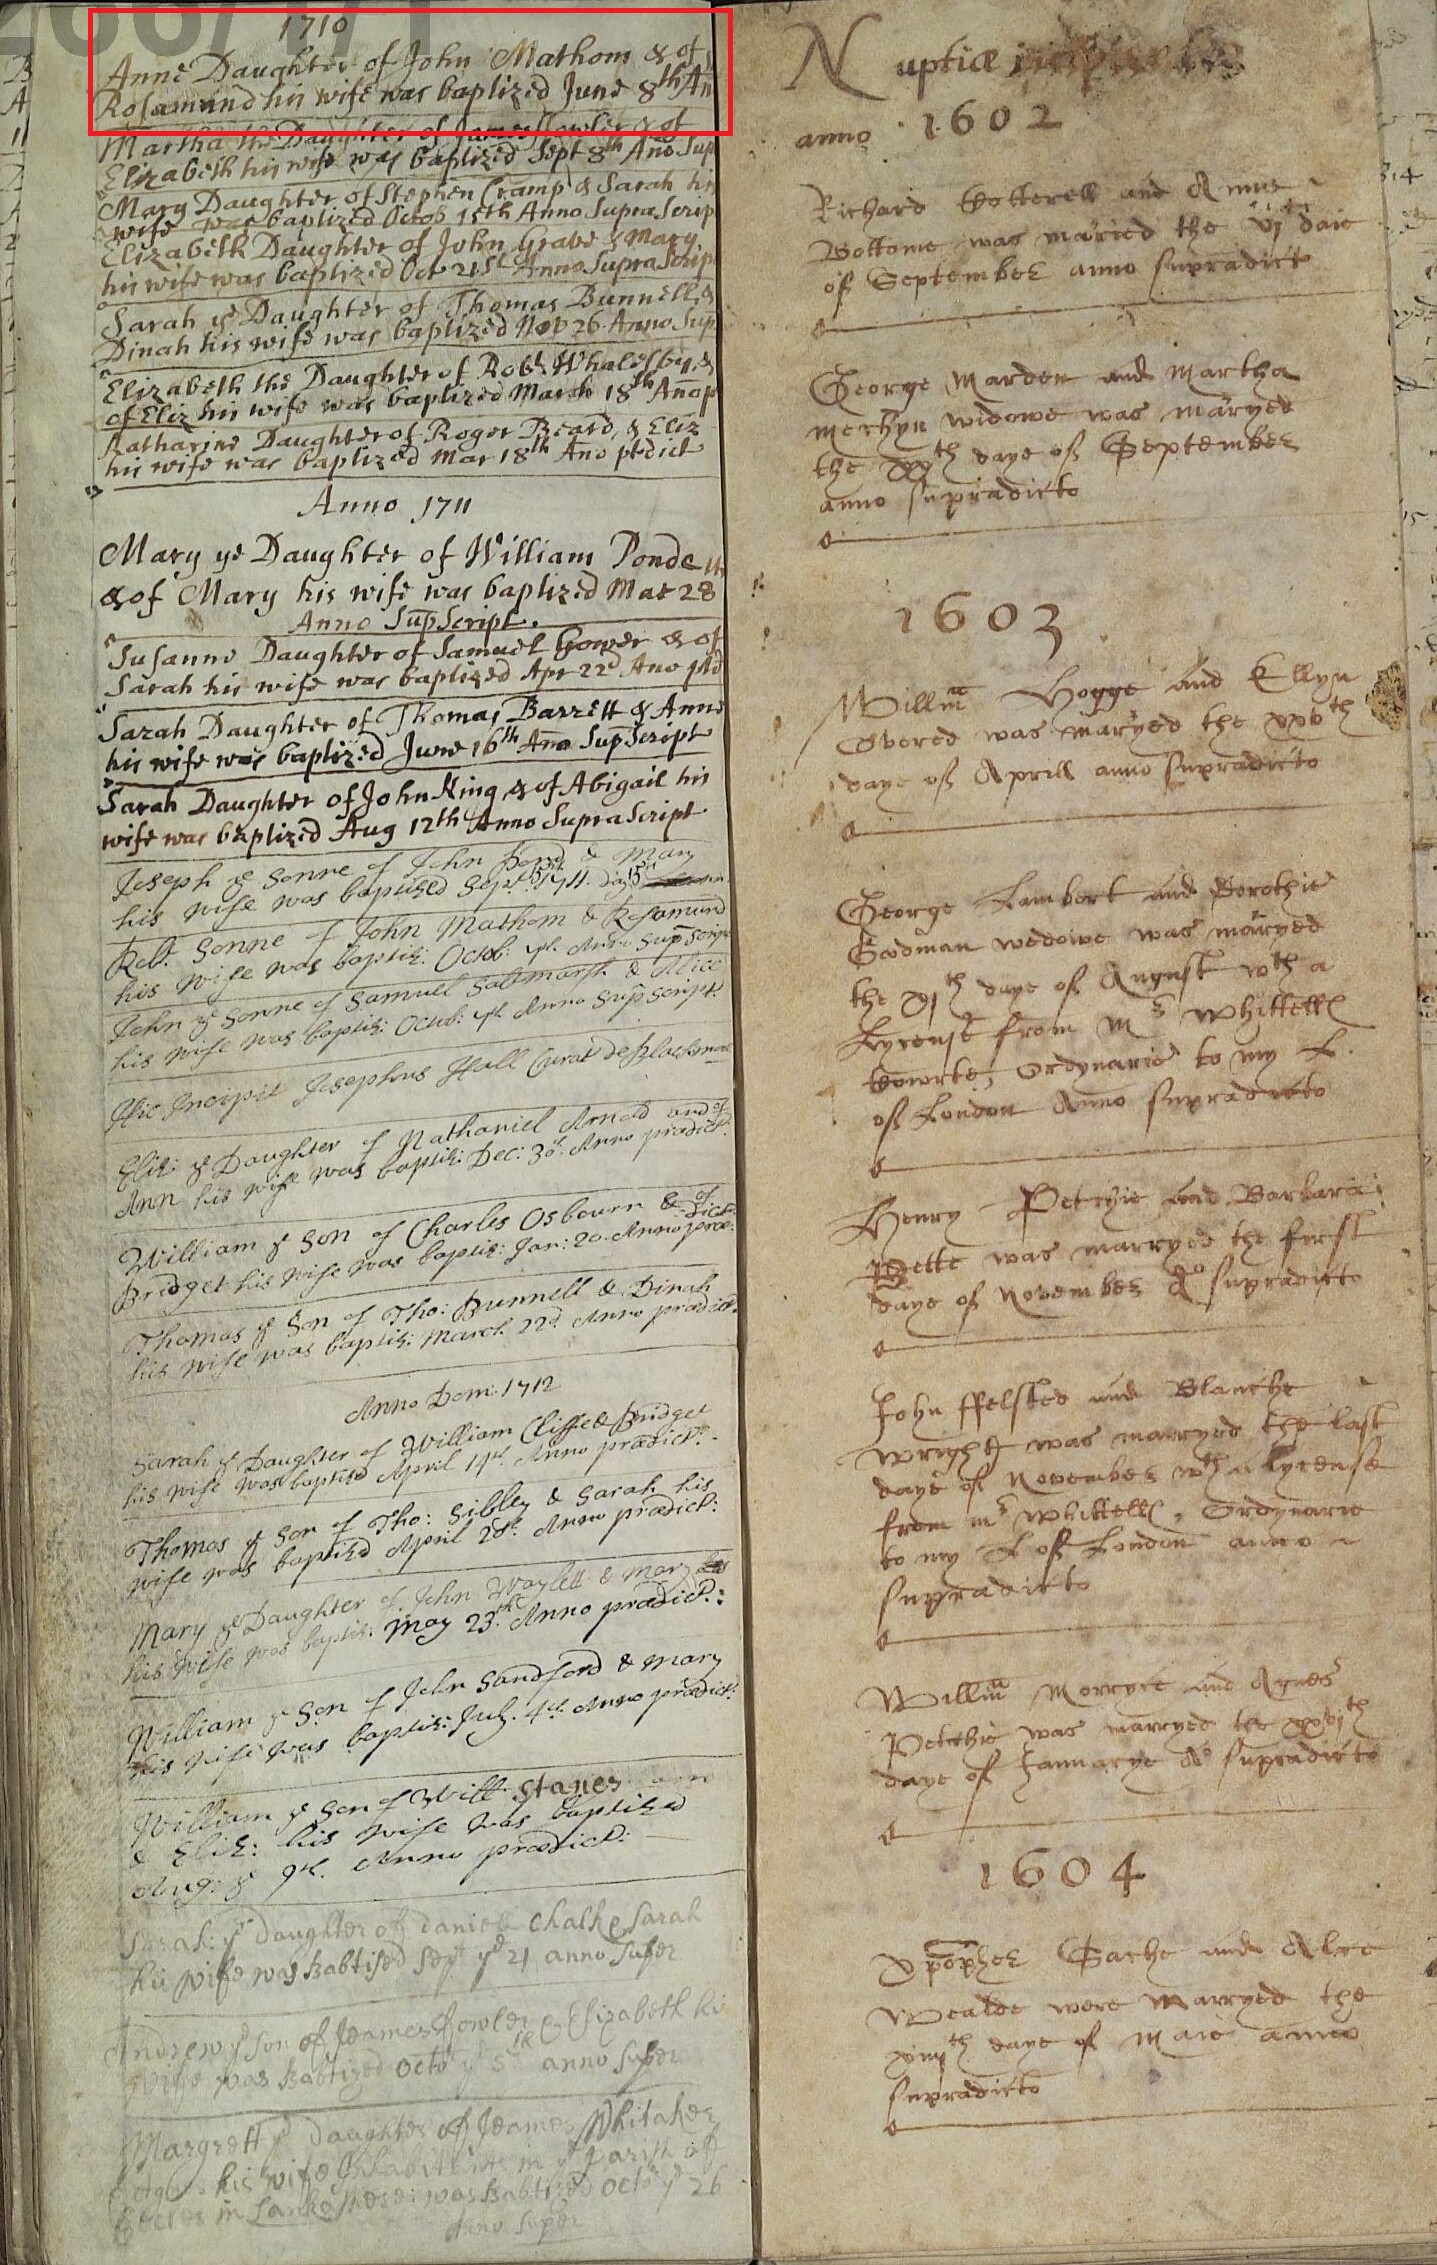 1710
Anne Daughter of John Mathom & of
Rosamund his wife was baptized June 8th An
Martha the Daughter of James Fowler & of
Elizabeth his wife was baptized Sept 8th Ano Sup
Mary Daughter of Stephen Cramp & Sarah his
wife was baptized Octob 15th Anno Supra Scrip
Elizabeth Daughter of John Grave & Mary
his wife was baptized Oct 21st Anno Supra Scrip
Sarah ye Daughter of Thomas Bunnell &
Dinah his wife was baptized Nov 26 Anno Sup
Elizabeth the Daughter of Robt Whalesby &
of Eliz his wife was baptized March 18th Ano p
Katharine Daughter of Roger Beard, & Eliz
his wife was baptized Mar 18th Ano pdict
Anno 1711
Mary ye Daughter of William Ponde
& of Mary his wife was baptized Mar 28
Anno SupScript.
Susanne Daughter of Samuel Gower & of
Sarah his wife was baptized Apr 22d Ano
Sarah Daughter of Thomas Barrett & Anne
his wife was baptized June 16th Ano SupScript
Sarah Daughter of John King & of Abigail his
wife was baptized Aug 12th Anno Supra Script
Joseph ye Sonne of John & Mary
his wife was baptized Sept 1711.
Rob: Sonne of John Mathom & Rosamund
his wife was baptiz: Octob: Anno Sup Script
John ye Sonne of Samuel Saltmarsh & Alice
his wife was baptiz: Octob: Anno Sup Script:
Hic Incipit Josephus Hall Curat de
Eliz: ye Daughter of Nathaniel Arnold and of
Ann his wife was baptiz: Dec: 30. Anno prædict:
William ye Son of Charles Osbourn & of
Bridget his wife was baptiz: Jan: 20. Anno præ:
Thomas ye Son of Tho: Bunnell & Dinah
his wife was baptiz: March 22d Anno prædict:
Anno Dom: 1712
Sarah ye Daughter of William Cliffe & Bridget
his wife was baptised April 14th Anno prædict:
Thomas ye Son of Tho: Sibley & Sarah his
wife was baptized April 28th Anno prædict:
Mary ye Daughter of John Waylett & Mary
his wife was baptiz: May 23. Anno prædict:
William ye Son of John Sandford & Mary
his wife was baptiz: July 4th Anno prædict:
William ye Son of Will Stanes
& Eliz: his wife was baptized
Aug: ye 9th. Anno prædict:
Sarah ye Daughter of Daniell Chalk & Sarah
his wife was Babtised Sept ye 21 anno Super
Andrew ye son of Jeames fowler & Elizabeth his
wife was Babtized Octo ye 5th anno Super
Margrett ye Daughter of Jeames Whitaker
his wife Inhabitants in ye Parish of
in was Babtized Octo ye 26
Anno Super
Nuptiæ
anno 1602
Richard Cotterell and Anne
Bottome was maried the vjth daie
of September anno supradicto
George Marden and Martha
Merkyn widowe was maryed
the xxth daye of September
anno supradicto
1603
Willm Hogge and Ellyn
Overed was maryed the xxvth
daye of Aprill anno supradicto
George Lambert and Dorothie
Godman wedowe was maryed
the xjth daye of August wth a
Lycense from Mr Whittell
Ordynarie to my L.
of London Anno supradicto
Henry Petchie and Barbara
was marryed the first
daye of November Ao supradicto
John ffelsted and Blanche
Wright was marryed the last
daye of November wth a lycense
from Mr Whittell, Ordynarie
to my L of London anno
supradicto
Willm Morryce and Agnes
Petchie was marryed the xxvjth
daye of Januarye Ao supradicto
1604
Xpopher Gache and Alce
Wealde were Marryed the
xiiijth daye of Maie anno
supradicto